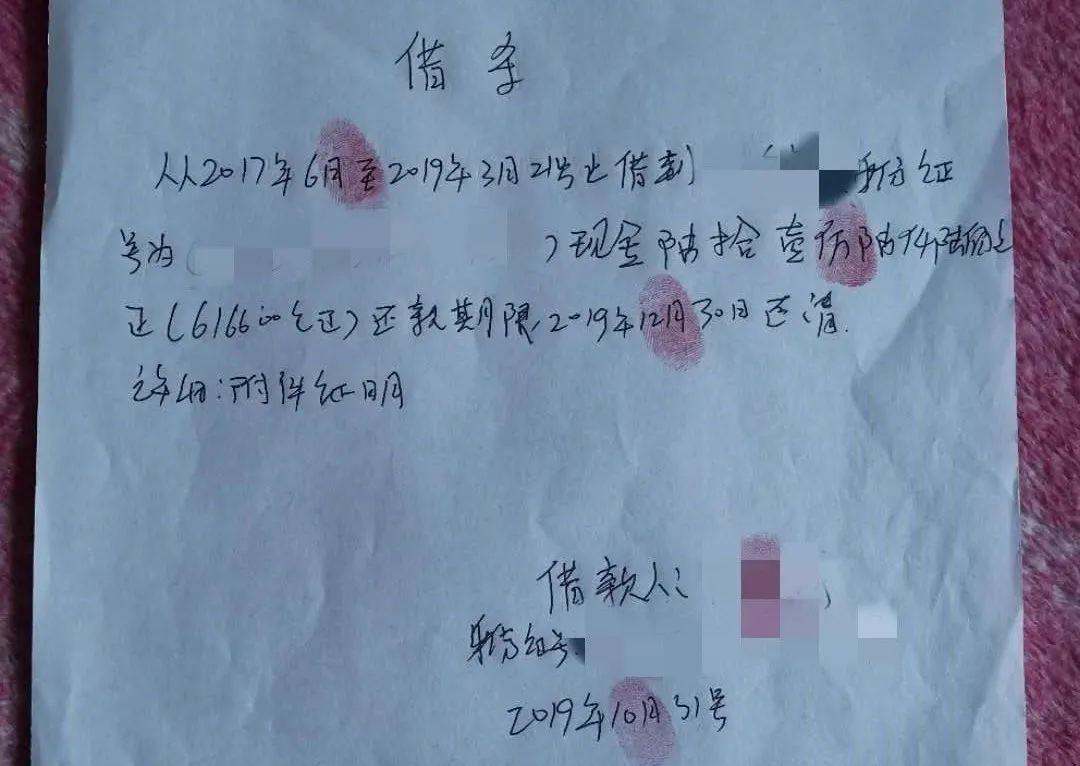 借条
从2017年6月至2019年3月21号止借到 身份证
号为( )现金陆拾壹万陆仟陆佰元
正(616600元正)还款期限,2019年12月30日还清.
详细:附件证明
借款人:( )
身份证号:
2019年10月31号